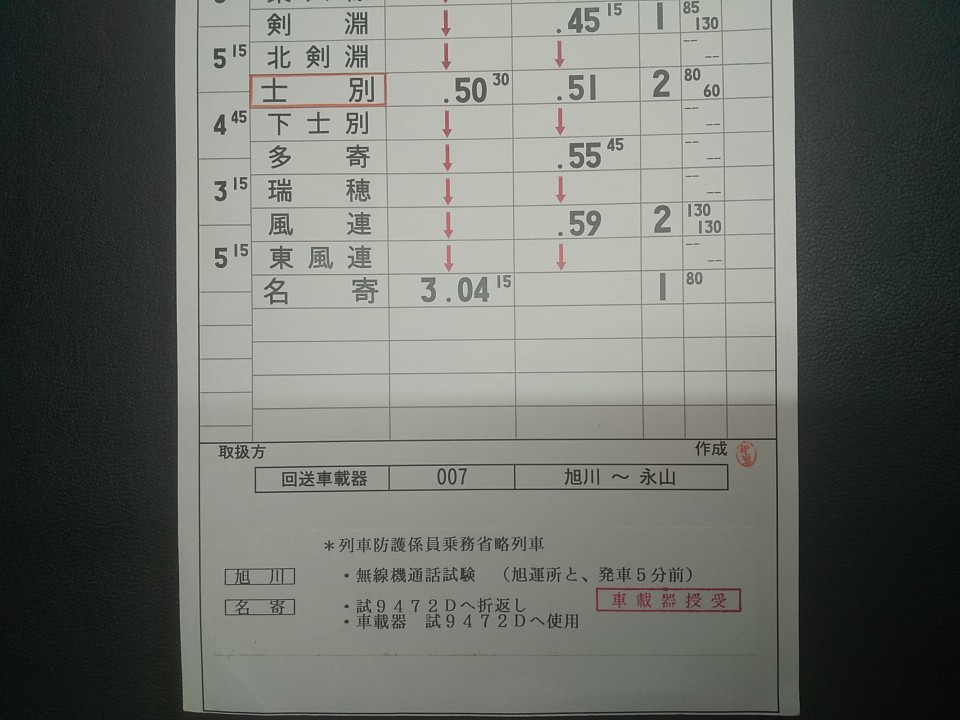 剣淵 ↓ .45 15 1 85 130
5 15
北剣淵 ↓ ↓ -- --
士別 .50 30 .51 2 80 60
4 45
下士別 ↓ ↓ -- --
多寄 ↓ .55 45 -- --
3 15
瑞穂 ↓ ↓ -- --
風連 ↓ .59 2 130 130
5 15
東風連 ↓ ↓ -- --
名寄 3.04 15 1 80
取扱方 作成
回送車載器 007 旭川 ～ 永山
＊列車防護係員乗務省略列車
旭川 ・無線機通話試験 （旭運所と、発車５分前）
車載器授受
名寄 ・試９４７２Ｄへ折返し
・車載器 試９４７２Ｄへ使用